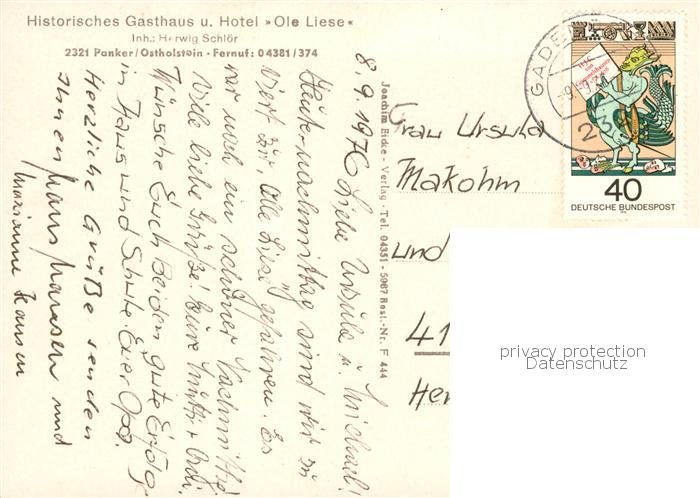 Historisches Gasthaus u. Hotel »Ole Liese«
Inh.: Herwig Schlör
2321 Panker/Ostholstein - Fernuf: 04381/374
8.9.1976 Liebe Ursula u. Michael!
Heute nachmittag sind wir zu
"Ole Liese" gefahren. Es
war noch ein schöner Nachmittag
Viele liebe Grüße! Eure Mutti +
Wünsche Euch Beiden gute Erfolge
in Haus und Schule. Euer Opa.
Herzliche Grüße senden
Ihnen Hans Hansen und
Marianne Hansen
Joachim Eicke - Verlag - Tel. 04351 - 5987 Best.-Nr. F 444
Frau Ursula
Makohm
und
41
Her
GADE
-9.
23
40
DEUTSCHE BUNDESPOST
privacy protection
Datenschutz